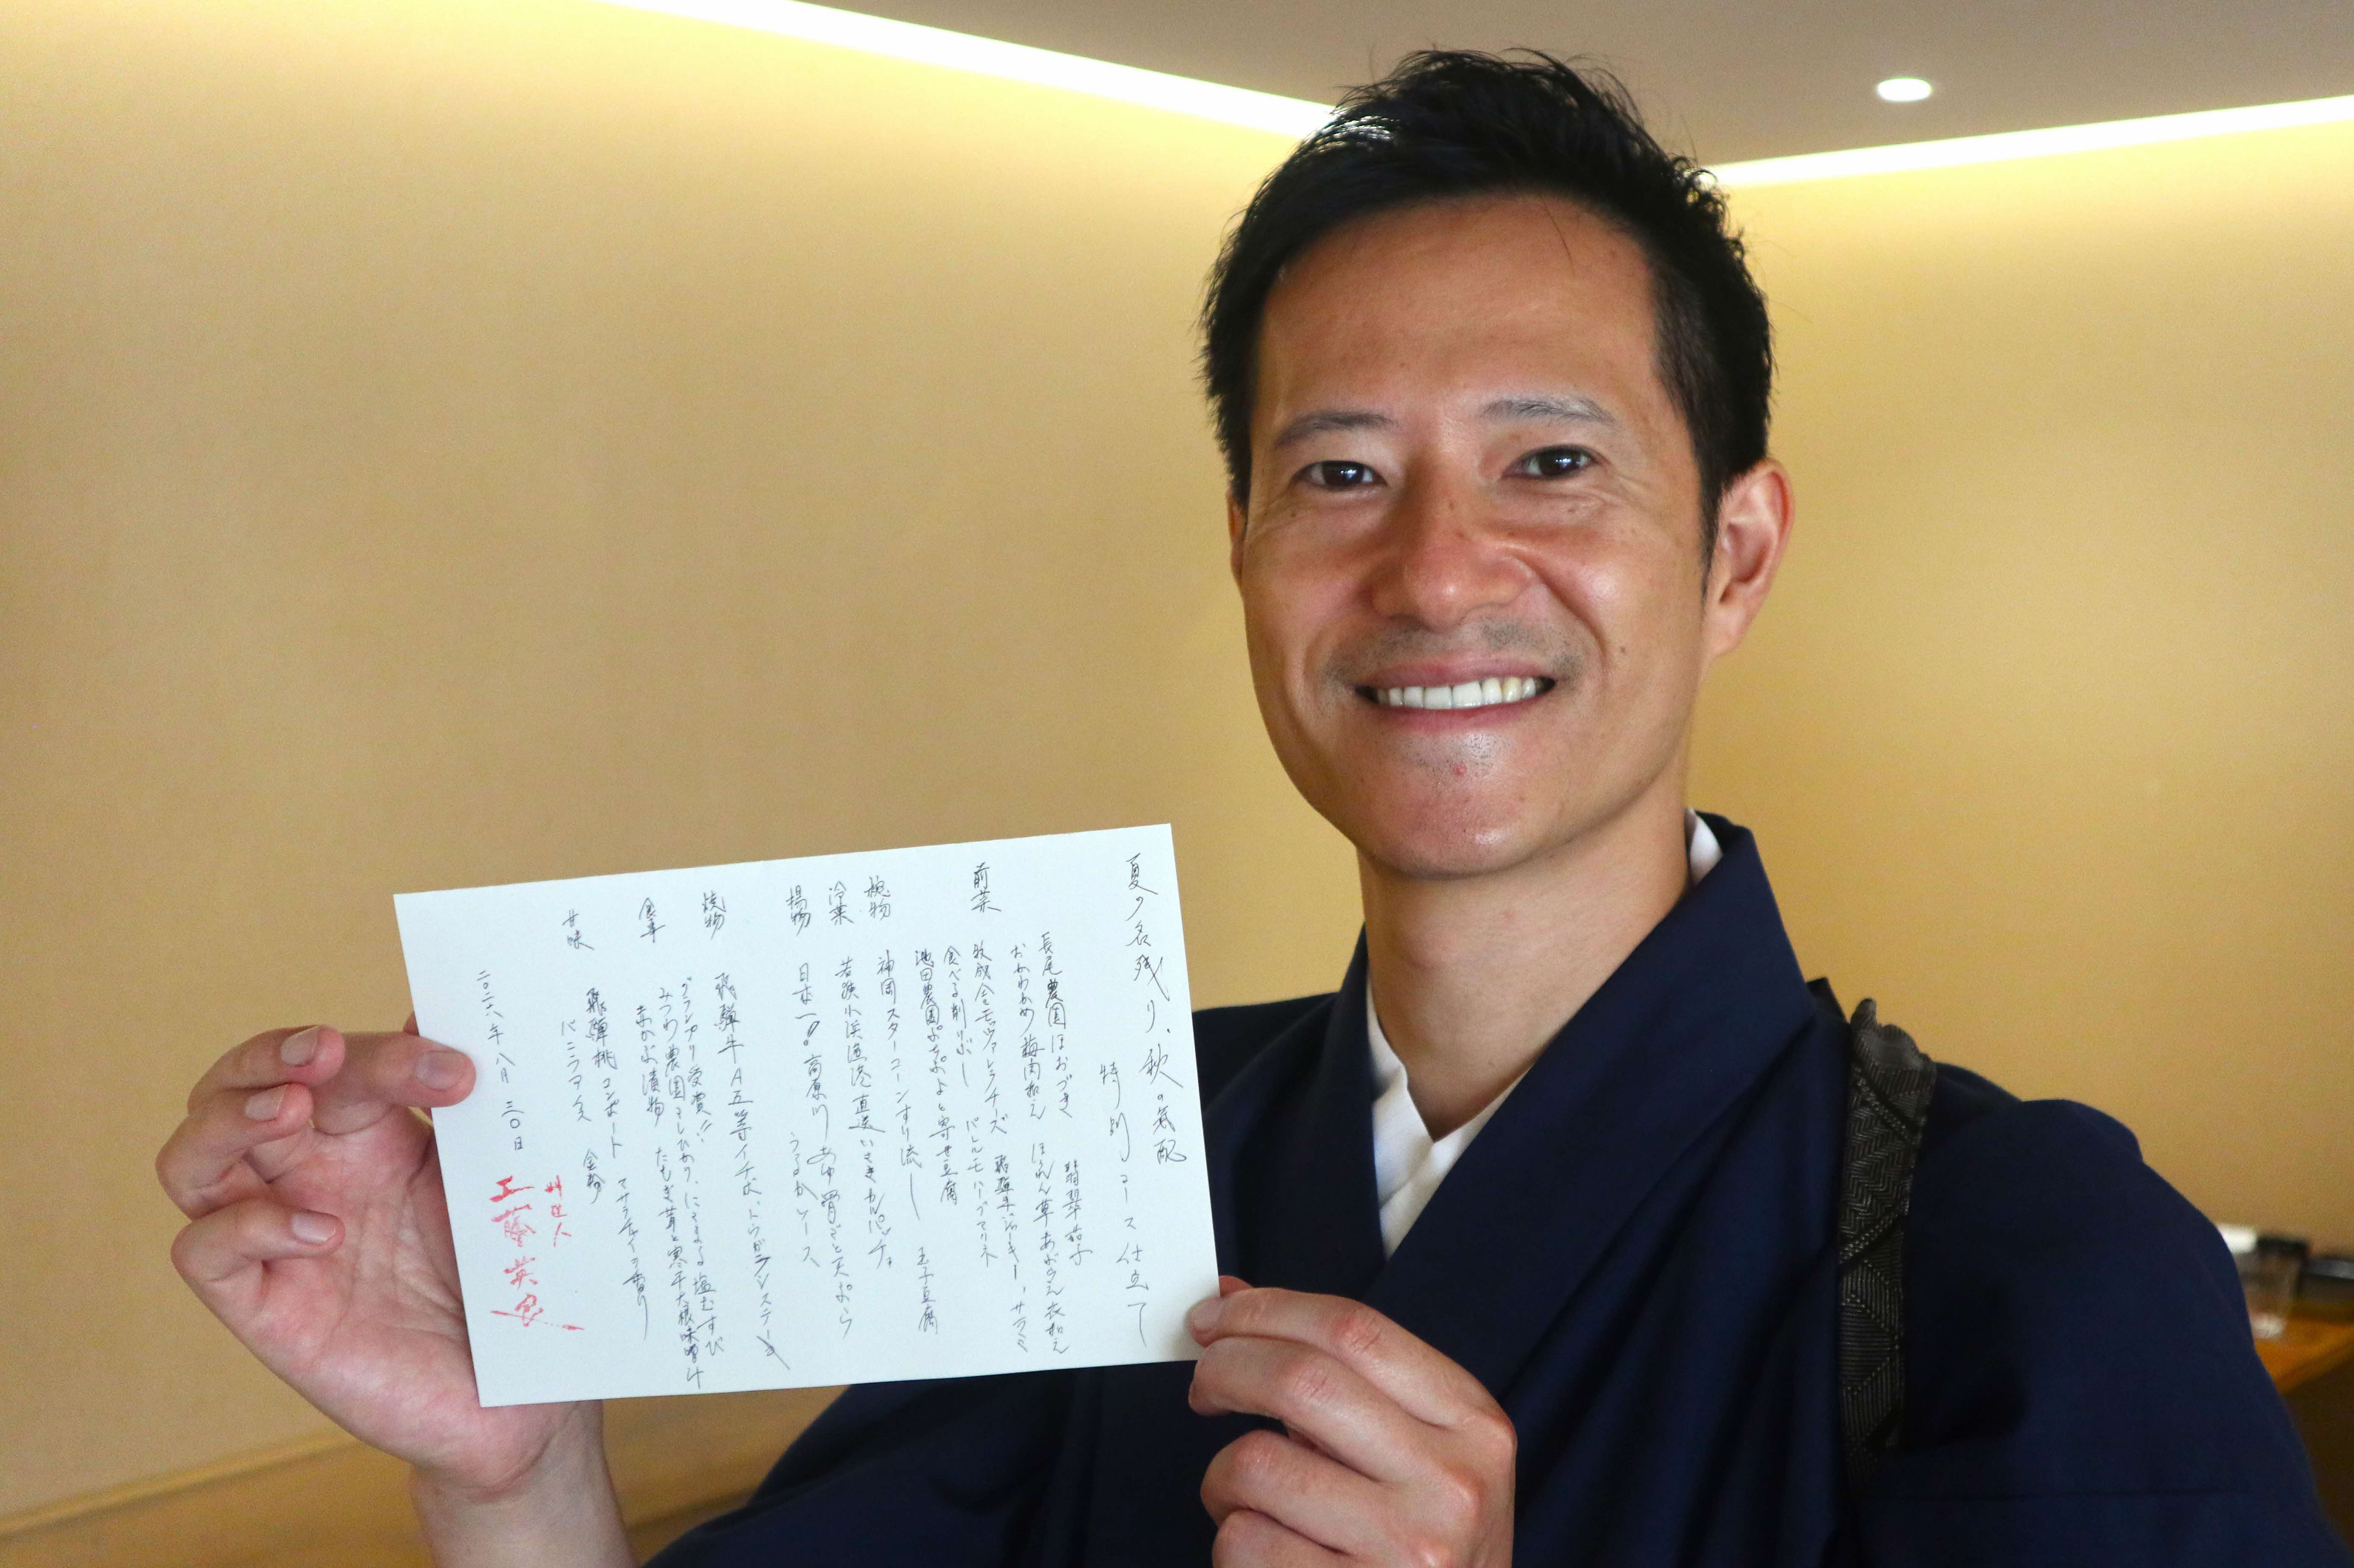 夏の名残り、秋の気配
特別コース仕立て
前菜
長尾農園ほおづき 翡翠茄子
おかわかめ梅肉和え ほうれん草あぶらえ衣和え
牧成舎モッツァレラチーズ 飛騨牛ジャーキー、サラミ
食べる削りぶし パレルモハーブマリネ
池田農園 よせ豆腐 玉子豆腐
椀物 神岡スターコーンすり流し
冷菜 若狭小浜漁港直送いさきカルパッチョ
揚物 日本一!!高原川あゆ骨ごと天ぷら
うるかソース
焼物 飛騨牛A五等イチボ、トウガラシステーキ
食事 グランプリ受賞!!みつわ農園こしひかり、にままる塩むすび
赤かぶ漬物 たもぎ茸と寒干大根味噌汁
甘味 飛騨桃コンポート マサラチャイの香り
バニラアイス 金粉
二〇二六年 八月 三〇日
料理人
工藤英良